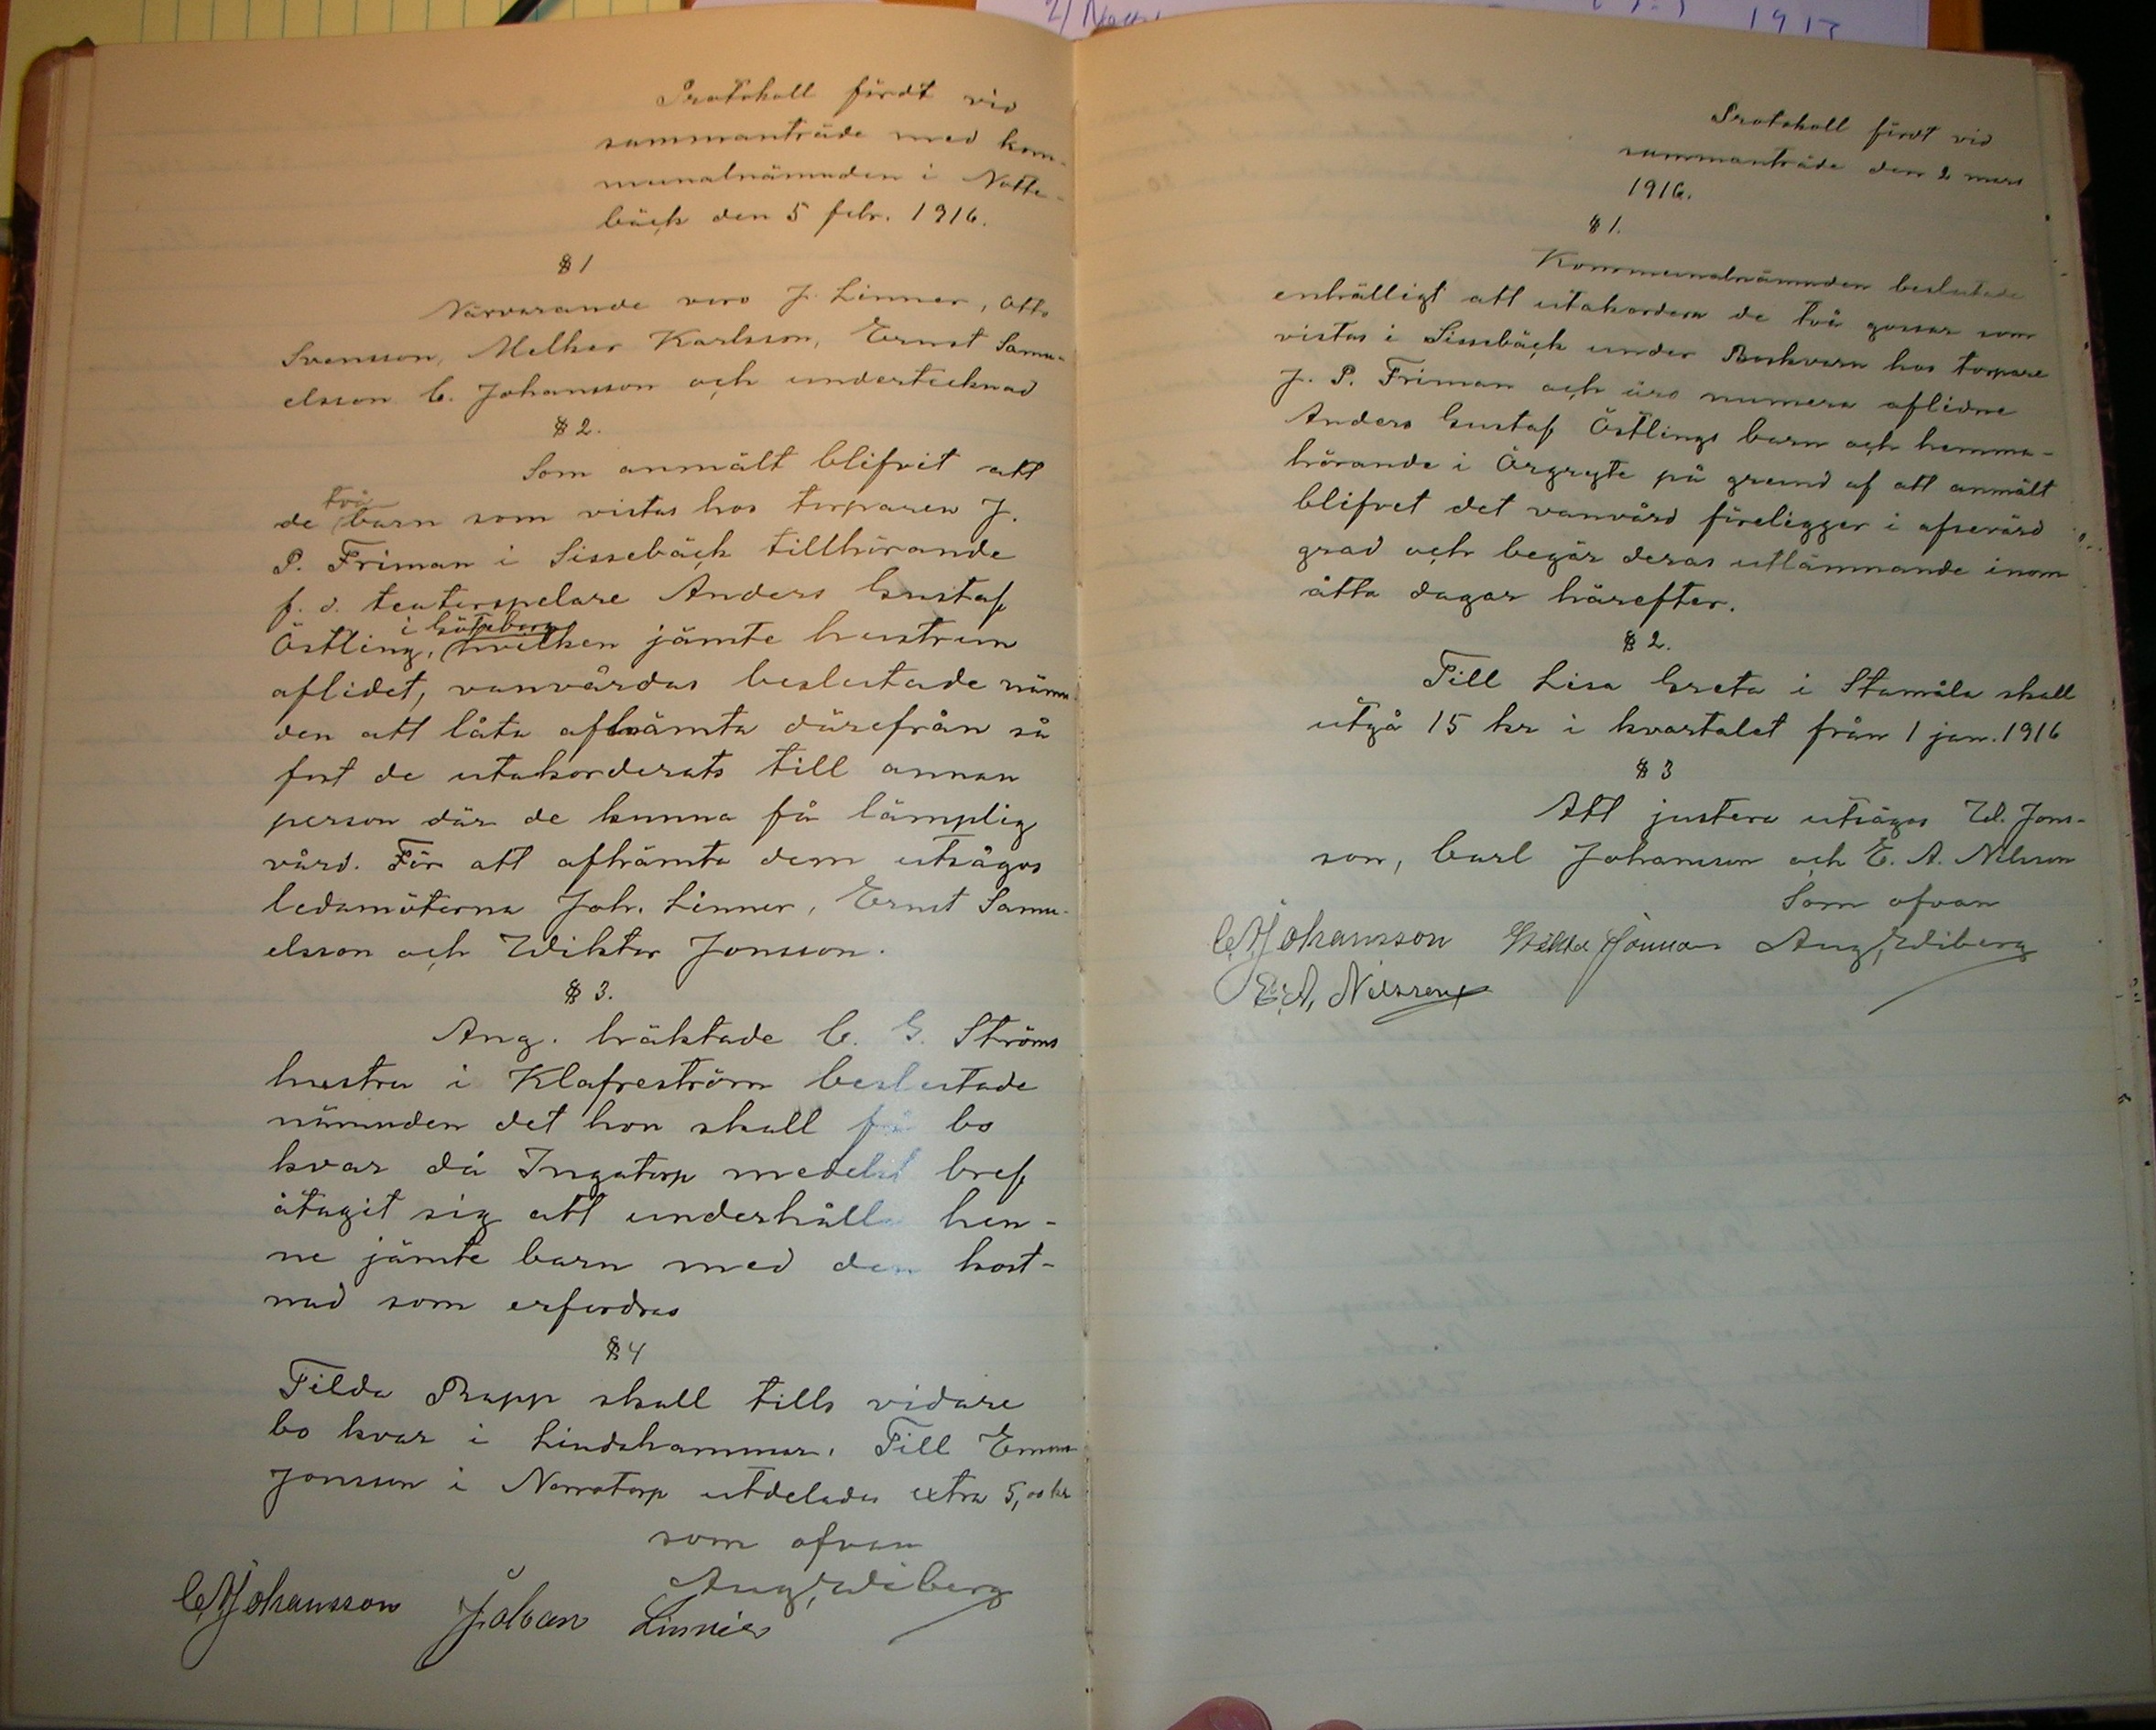 Protokoll fördt vid
sammanträde med kom-
munalnämnden i Notte-
bäck den 5 febr. 1916.
§ 1
Närvarande voro J. Linner, Otto
Svensson, Melker Karlsson, Ernst Samu-
elsson C. Johansson och undertecknad
§ 2.
Som anmält blifvit att
två
de barn som vistas hos torparen J.
P. Friman i Sissebäck tillhörande
f. d. teaterspelare Anders Gustaf
i Göteborg
Östling, hvilken jämte hustrun
aflidet, vanvårdas beslutade nämn-
den att låta afhämta därefrån så
fort de utakorderats till annan
person där de kunna få lämplig
vård. För att afhämta dem utsågos
ledamöterna Joh. Linner, Ernst Samu-
elsson och Wiktor Jonsson.
§ 3.
Ang. häktade C. G. Ströms
hustru i Klafreström beslutade
nämnden det hon skall få bo
kvar då Ingatorp medelst bref
åtagit sig att underhålla hen-
ne jämte barn med den kost-
nad som erfordras
§ 4
Tilda Rapp skall tills vidare
bo kvar i Lindshammar. Till Emma
Jonsson i Norratorp utdelades extra 5,00 kr
som ofvan
Aug. Wiberg
C. A. Johansson Johan Linnér
2/
1915
Protokoll fördt vid
sammanträde den 2 mars
1916.
§ 1.
Kommunalnämnden beslutade
enhälligt att utakordera de två gossar som
vistas i Sissebäck under Boskvarn hos torpare
J. P. Friman och äro numera aflidne
Anders Gustaf Östlings barn och hemma-
hörande i Örgryte på grund af att anmält
blifvet det vanvård föreligger i afsevärd
grad och begär deras utlämnande inom
åtta dagar härefter.
§ 2.
Till Lisa Greta i Stamåla skall
utgå 15 kr i kvartalet från 1 jan. 1916
§ 3
Att justera utsågos W. Jons-
son, Carl Johansson och E. A. Nilsson
Som ofvan
C. A. Johansson Wiktor Jonsson Aug. Wiberg
E. A. Nilsson